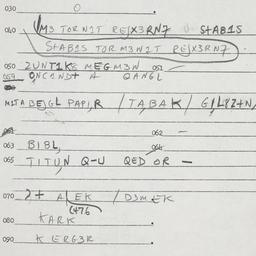 030 O
040 M3 TORN2T REJX3RN7 STAB1S
STAB1S TOR M3N2T REJX3RN7
050 2UNT1KE MEGM3N 051
059 QNCONDT A QANGL
M2TA BEJGL PAPIR / TABAK / GILYZTN,
062 -
063 BIBL, 064
065 TITUN Q-U QED OR -
070 2+ A EK / D3M EK
(476
080 KARK
090 K ERG3R